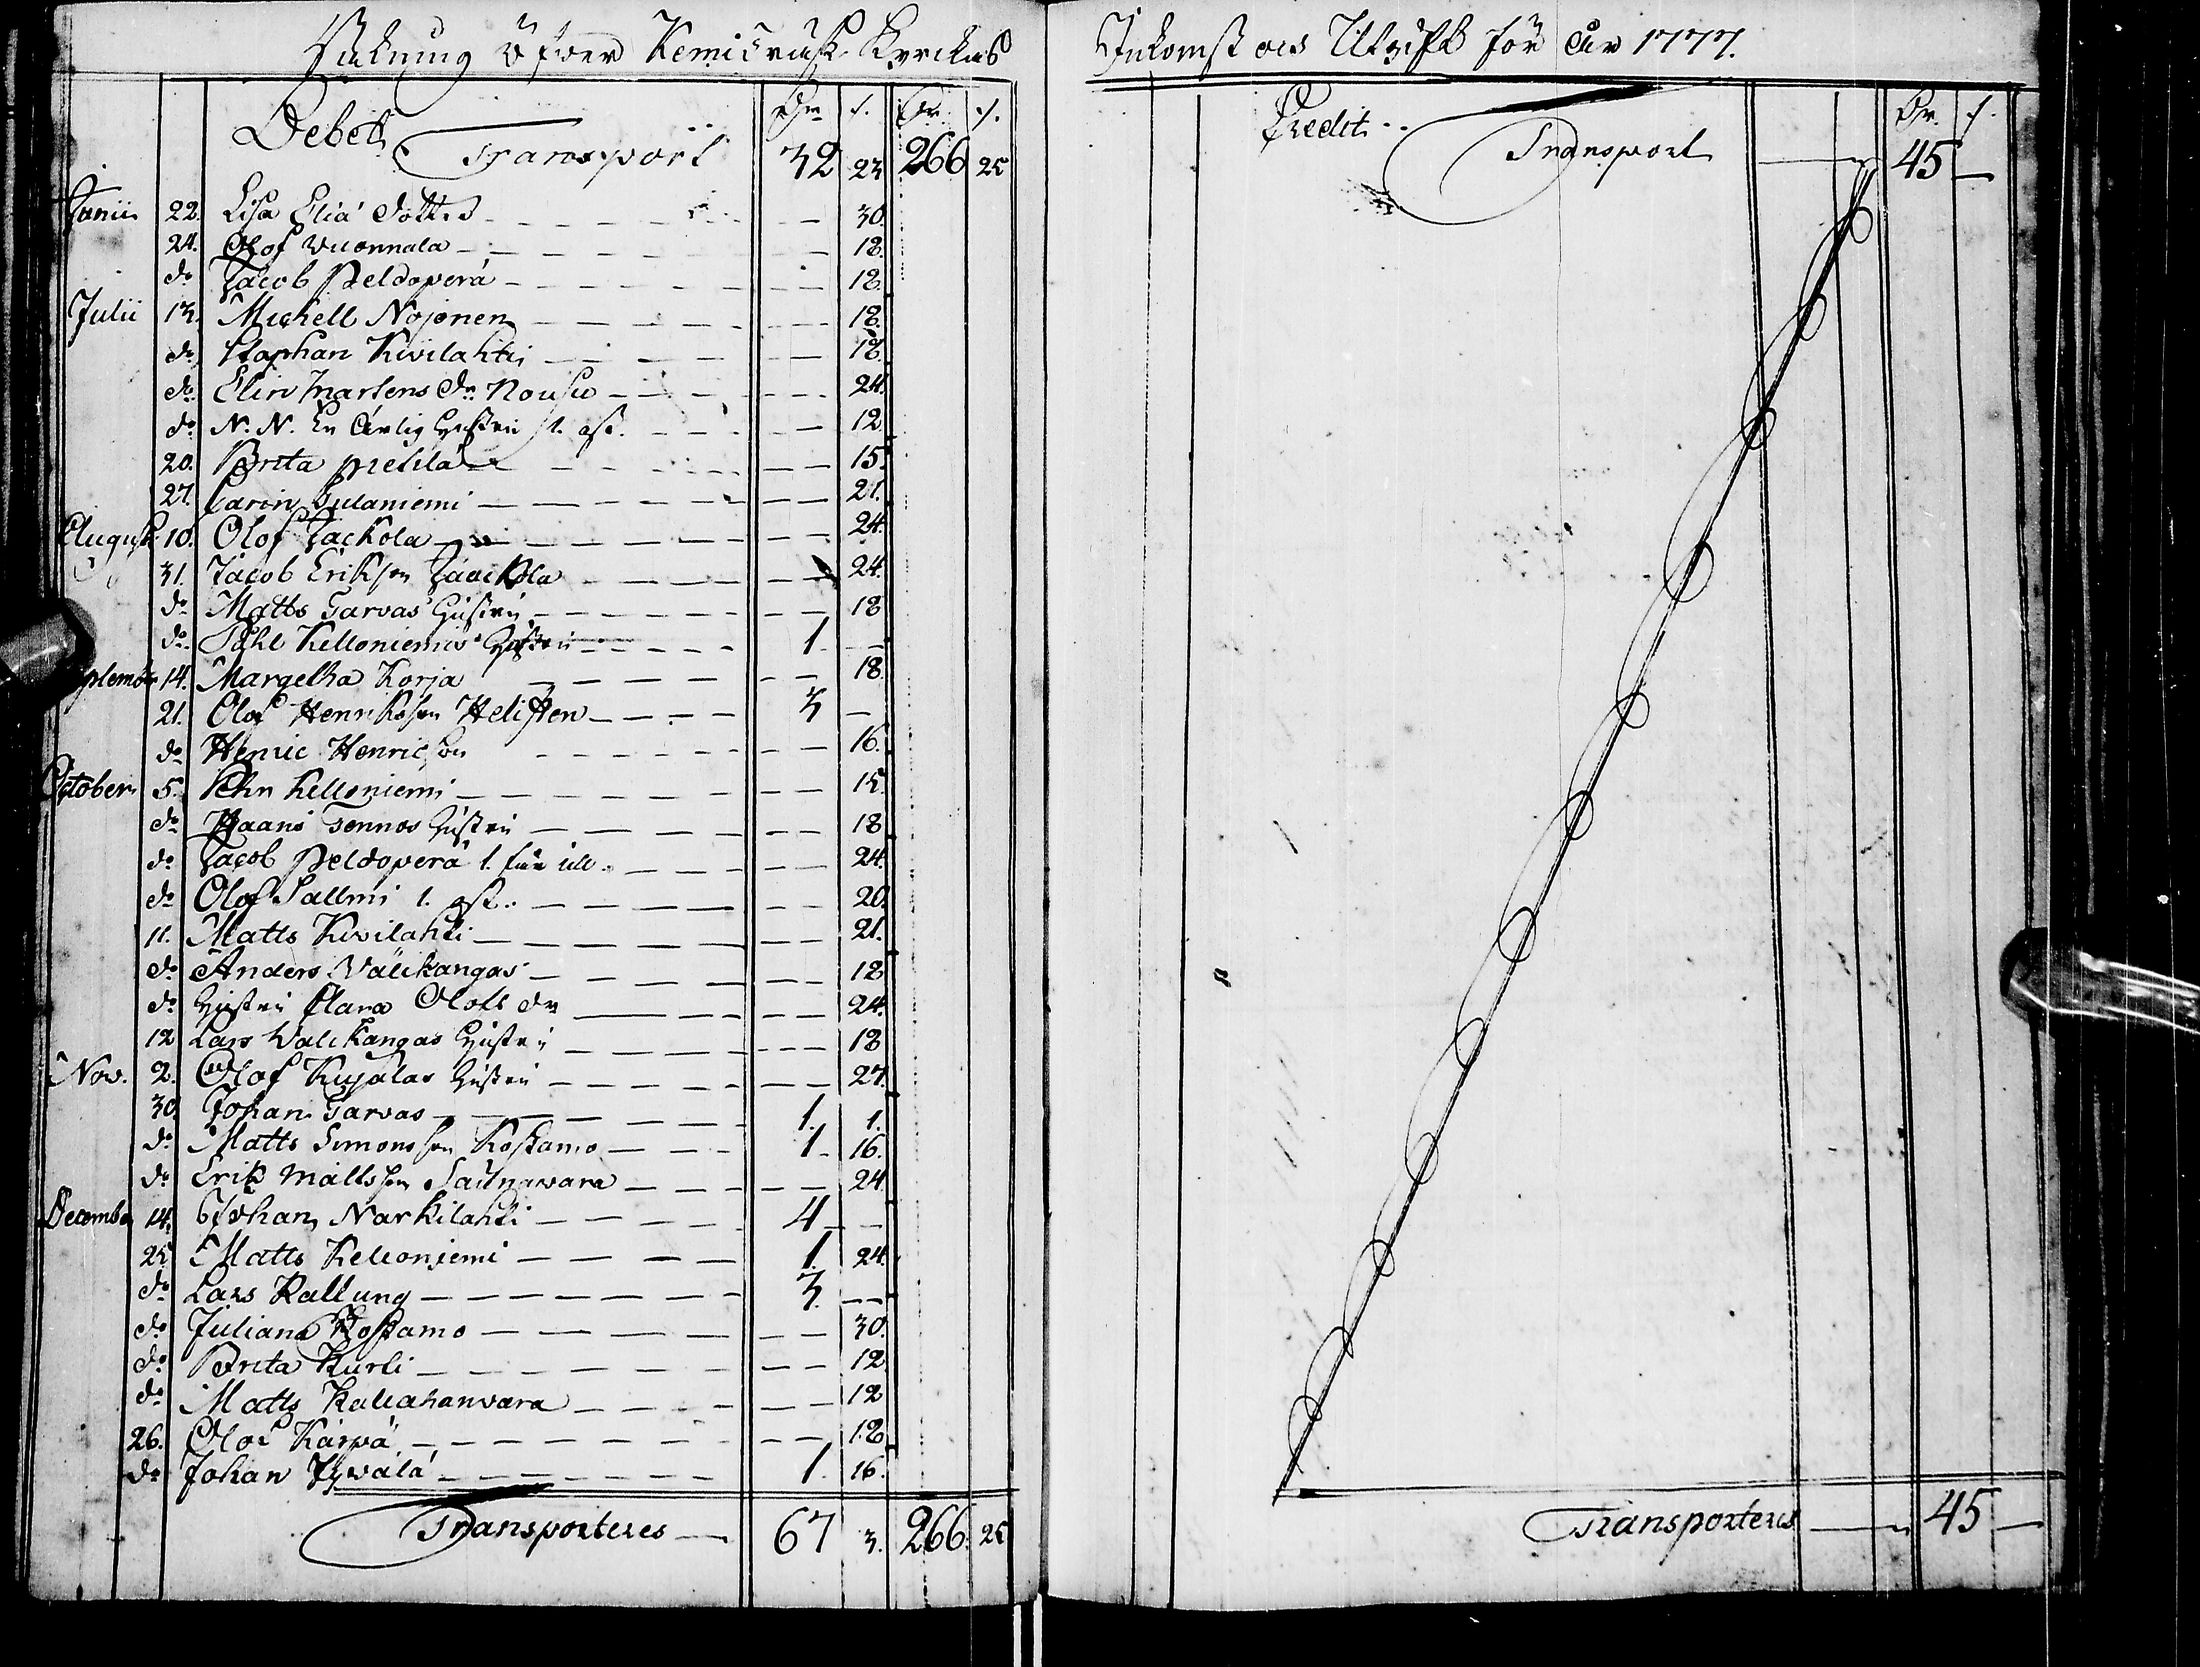 Räkning öfwer Kemiträsk Kyrckas
Debet Dr s. Dr s.
Transport 32 23 266 25
Junii 22. Lisa Eliæ dotter 30.
24. Olof Wuonnala 18.
do Jacob Peldoperä 12.
Julii 13. Michell Nojonen 18.
do Staphan Kivilahti 18.
do Elin Martens dr Nousu 24.
do N. N. En ärlig Hustru 1. ask. 12
20. Brita Pietilä 15.
27. Carin Sulaniemi 21.
August 10. Olof Jackola 24.
31. Jacob Erikson Jaackola 24.
do Matts Tarvas Hustru 18
do Påhl Kelloniemis Hustru 1. —
Septembr 14. Margetha Korja 18.
21. Olof Henrikson Helisten 3 —
do Henric Henricson 16.
October 5. Pehr Kelloniemi 15.
do Hans Tennos Hustru 18
do Jacob Peldoperä 1. får ull 24.
do Olof Sallmi 1. ost. 20.
11. Matts Kivilahti 21.
do Anders Välikangas 12
do Hustru Clara Olofs dr 24.
12 Lars Walikangas Hustru 18
Nov. 2. Olof Kujalas Hustru 27.
30 Johan Tarvas 1. 1.
do Matts Simonson Kostamo 1. 16.
do Erik Mattsson Sailnawara 24
December 14. Johan Narkilahti 4 —
25 Matts Kelloniemi 1. 24.
do Lars Kallung 3. —
do Juliana Kostamo 30.
do Brita Kurti 12
do Matts Kallahanvara 12
26. Olof Kärpä 12
do Johan Kywälä 1. 16.
Transporteres 67 3. 266. 25
Inkomst och Utgift för år 1777.
Credit Dr. s.
Transport 45 —
Transporteres 45 —